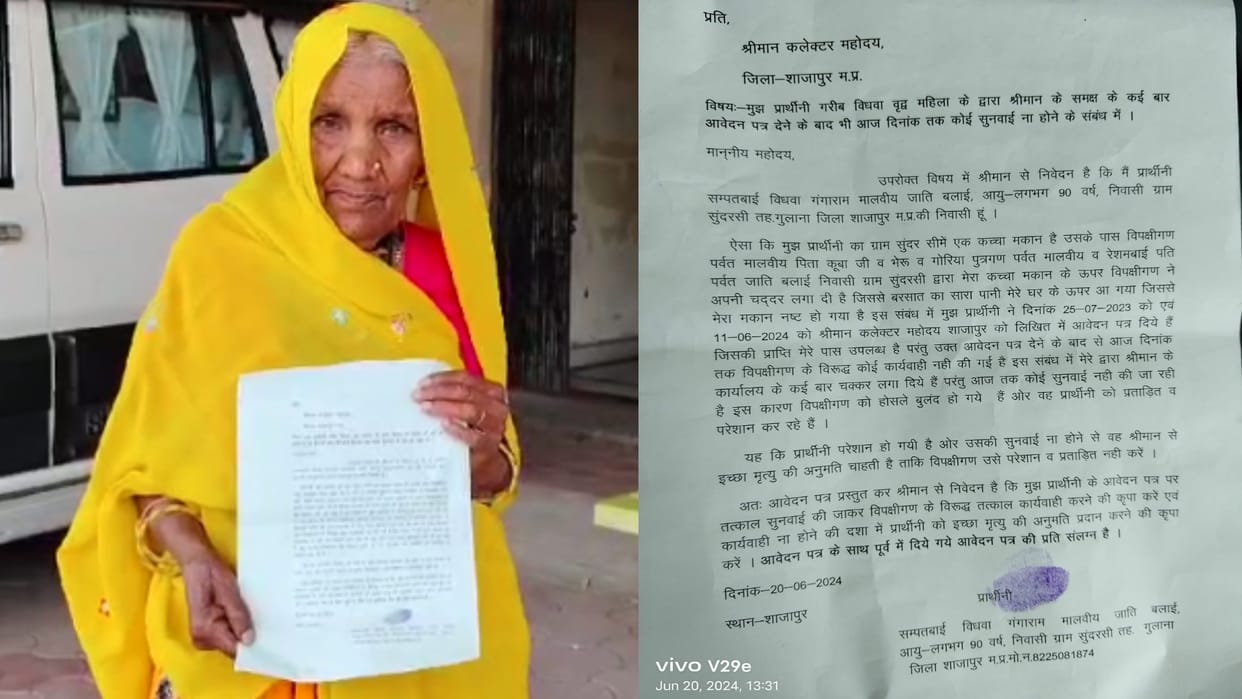 प्रति,
श्रीमान कलेक्टर महोदय,
जिला–शाजापुर म.प्र.
विषयः–मुझ प्रार्थीनी गरीब विधवा वृद्व महिला के द्वारा श्रीमान के समक्ष के कई बार
आवेदन पत्र देने के बाद भी आज दिनांक तक कोई सुनवाई ना होने के संबंध में ।
मान्नीय महोदय,
उपरोक्त विषय में श्रीमान से निवेदन है कि मैं प्रार्थीनी
सम्पतबाई विधवा गंगाराम मालवीय जाति बलाई, आयु–लगभग 90 वर्ष, निवासी ग्राम
सुंदरसी तह.गुलाना जिला शाजापुर म.प्र.की निवासी हूं ।
ऐसा कि मुझ प्रार्थीनी का ग्राम सुंदर सीमें एक कच्चा मकान है उसके पास विपक्षीगण
पर्वत मालवीय पिता कूबा जी व भेरू व गोरिया पुत्रगण पर्वत मालवीय व रेशमबाई पति
पर्वत जाति बलाई निवासी ग्राम सुंदरसी द्वारा मेरा कच्चा मकान के ऊपर विपक्षीगण ने
अपनी चद्दर लगा दी है जिससे बरसात का सारा पानी मेरे घर के ऊपर आ गया जिससे
मेरा मकान नष्ट हो गया है इस संबंध में मुझ प्रार्थीनी ने दिनांक 25–07–2023 को एवं
11–06–2024 को श्रीमान कलेक्टर महोदय शाजापुर को लिखित में आवेदन पत्र दिये हैं
जिसकी प्राप्ति मेरे पास उपलब्ध है परंतु उक्त आवेदन पत्र देने के बाद से आज दिनांक
तक विपक्षीगण के विरूद्ध कोई कार्यवाही नही की गई है इस संबंध में मेरे द्वारा श्रीमान के
कार्यालय के कई बार चक्कर लगा दिये हैं परंतु आज तक कोई सुनवाई नही की जा रही
है इस कारण विपक्षीगण को होसले बुलंद हो गये हैं ओर वह प्रार्थीनी को प्रताड़ित व
परेशान कर रहे हैं ।
यह कि प्रार्थीनी परेशान हो गयी है ओर उसकी सुनवाई ना होने से वह श्रीमान से
इच्छा मृत्यु की अनुमति चाहती है ताकि विपक्षीगण उसे परेशान व प्रताड़ित नही करें ।
अतः आवेदन पत्र प्रस्तुत कर श्रीमान से निवेदन है कि मुझ प्रार्थीनी के आवेदन पत्र पर
तत्काल सुनवाई की जाकर विपक्षीगण के विरूद्ध तत्काल कार्यवाही करने की कृपा करें एवं
कार्यवाही ना होने की दशा में प्रार्थीनी को इच्छा मृत्यु की अनुमति प्रदान करने की कृपा
करें । आवेदन पत्र के साथ पूर्व में दिये गये आवेदन पत्र की प्रति संलग्न है ।
दिनांक–20–06–2024
स्थान–शाजापुर
प्रार्थीनी
सम्पतबाई विधवा गंगाराम मालवीय जाति बलाई,
आयु–लगभग 90 वर्ष, निवासी ग्राम सुंदरसी तह. गुलाना
जिला शाजापुर म.प्र.मो.न.8225081874
vivo V29e
Jun 20, 2024, 13:31